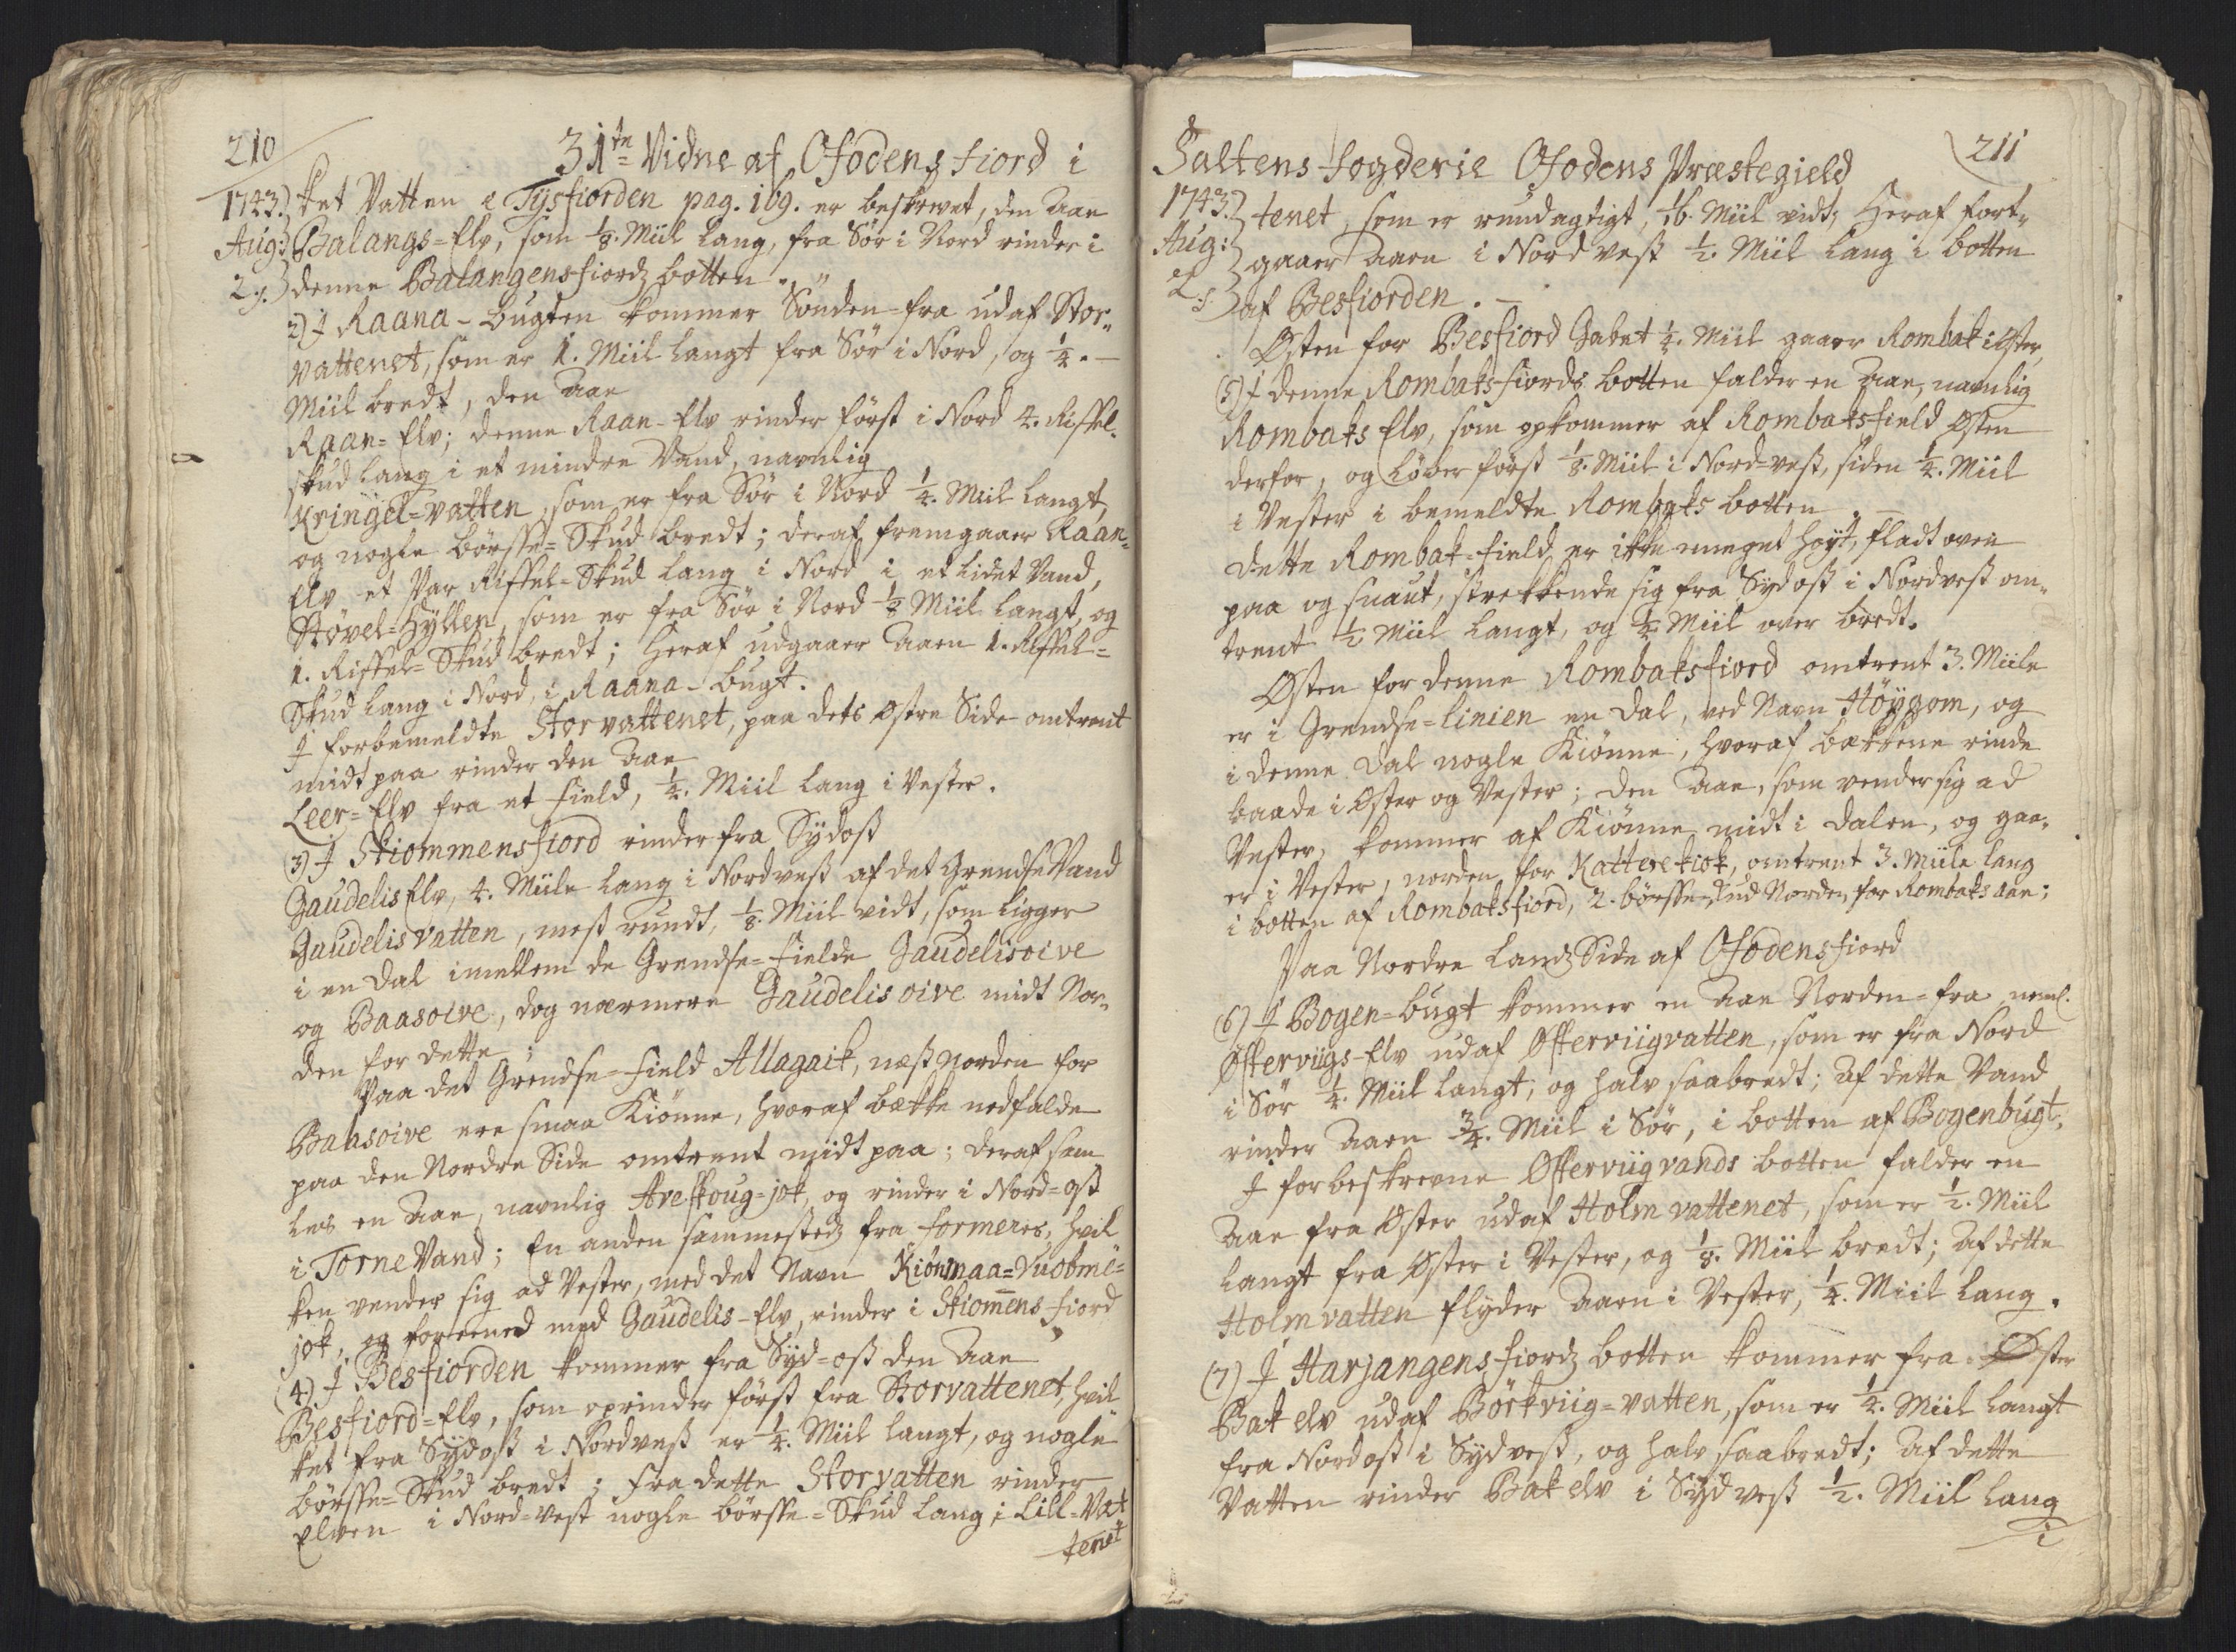 210
31te Vidne af Ofodens fiord i
1743.) ket Vatten i Tysfiorden pag. 169. er beskrevet, den Aae
Aug:) Balangs=Elv, som 1/8. Miil lang, fra Sør i Nord rinder i
2.) denne Balangensfiords botten.
2) J Raana-bugten kommer Sønden=fra udaf Stor„
vattenet, som er 1. Miil langt fra Sør i Nord, og 1/4.
Miil bredt, den Aae
Raan=Elv; denne Raan-Elv rinder først i Nord 4. Riffel„
skud lang i et mindre Vand, navnlig
Kringel=vatten, som er fra Sør i Nord 1/4. Miil langt,
og nogle børsse=Skud bredt; deraf fremgaaer Raan=
Elv et Par Riffel=Skud lang i Nord i et lidet Vand,
Støvel=Hyllen, som er fra Sør i Nord 1/8 Miil langt, og
1. Riffel=Skud bredt; Heraf udgaaer Aaen 1. Riffel=
Skud lang i Nord, i Raana-bugt.
J forbemeldte Storvattenet, paa dets Østre Side omtrent
midt paa rinder den Aae
Leer=Elv fra et Field, 1/4. Miil lang i Vester.
(3) J Skiommensfiord rinder fra Sydost
Gaudelis Elv, 4. Miile lang i Nordvest af det Grendse Vand
Gaudelis Vatten, mest rundt, 1/8. Miil vidt, som ligger
i en Dal imellem de Grendse=Fielde Gaudelisoive
og Baasoive, dog nærmere Gaudelis oive midt Nor„
den for dette;
Paa det Grendse=Field Allagaik, næst Norden for
Baasoive ere smaa Kiønne, hvoraf bække nedfalde
paa den Nordre Side omtrent midt paa; deraf sam
les en Aae, navnlig Aveskoug=jok, og rinder i Nord=ost
i Torne Vand; En anden sammesteds fra formeres, hvil
ken vender sig ad Vester, med det Navn Kiönmaa=Vuobme=
jok, og foreened med Gaudelis-Elv, rinder i Skiomens fiord
(4) J Besfiorden kommer fra Syd=ost den Aae
Besfiord=Elv, som oprinder først fra Storvattenet, hvil
ket fra Sydost i Nordvest er 1/4. Miil langt, og nogle
børsse=Skud bredt; Fra dette Storvatten rinder
Elven i Nord=vest nogle børsse=Skud lang i Lill=Vat
tenet
Saltens fogderie Ofodens Præstegield
211
1743.} tenet, som er rundagtigt, 1/16. Miil vidt; Heraf fort„
Aug:} gaaer Aaen i Nordvest 1/2. Miil lang i botten
2.} af Besfiorden. —
Østen for Besfiord Gabet 1/4. Miil gaaer Rombak i Øster,
(5) J denne Rombaksfiords botten falder en Aae, navnlig
Rombaks Elv, som opkommer af Rombaksfield Østen
derfor, og løber først 1/8. Miil i Nord=vest, siden 1/4. Miil
i Vester i bemeldte Rombaks botten. —
Dette Rombak=field er ikke meget høyt, fladt oven
paa og snaut, strekkende sig fra Sydost i Nordvest om„
trent 1/2 Miil langt, og 1/4 Miil over bredt.
Østen for denne Rombaksfiord omtrent 3. Miile
er i Grendse=linien en Dal, ved Navn Höygom, og
i denne Dal nogle Kiønne, hvoraf bækkene rinde
baade i Øster og Vester; den Aae, som vender sig ad
Vester, kommer af Kiønne midt i Dalen, og gaa„
er i Vester, norden for Katterekiok, omtrent 3. Miile lang
i botten af Rombaksfiord, 2. børsse=Skud Norden for Rombaks aae;
Paa Nordre Lands Side af Ofodensfiord
(6) J Bogen=bugt kommer en Aae Norden=fra neml.
Østerviigs-Elv udaf Østerviigvatten, som er fra Nord
i Sør 1/4. Miil langt, og halv saa bredt; Af dette Vand
rinder Aaen 3/4. Miil i Sør, i botten af Bogenbugt,
J forbeskrevne Østerviigvands botten falder en
Aae fra Øster udaf Holmvattenet, som er 1/2. Miil
langt fra Øster i Vester, og 1/8. Miil bredt; Af dette
Holmvatten flyder Aaen i Vester, 1/4. Miil lang.
(7) J Harjangensfiords botten kommer fra Øster
Bak elv udaf Börkviig=vatten, som er 1/4. Miil langt
fra Nordost i Sydvest, og halv saa bredt; Af dette
Vatten rinder Bak elv i Sydvest 1/2. Miil lang
i